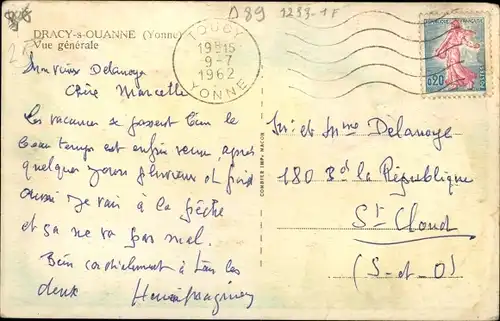 D89 1233-1F
DRACY-s-OUANNE (Yonne)
Vue générale
TOUCY
1915
9-7
1962
YONNE
0,20
Mr Delanoye
Chère Marcelle
Les vacances se passent bien le
beau temps est enfin venu, après
quelques jours pluvieux et froid
aussi je vais à la pêche
et ça ne va pas mal.
Bien cordialement à tous les
deux Henri
COMBIER IMP. MACON
Mr et Mme Delanoye
180 Bd la République
St Cloud
(S-et-O)